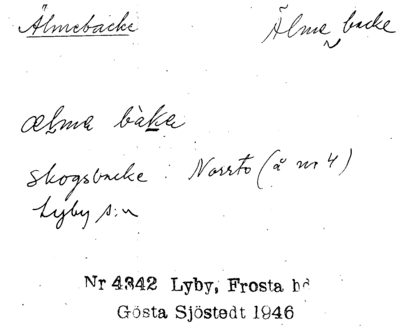 Älmebacke Älme backe
ælma bàka
skogsbacke i Norrto (å nr 4)
Lyby s:n
Nr 4342 Lyby, Frosta hd
Gösta Sjöstedt 1946